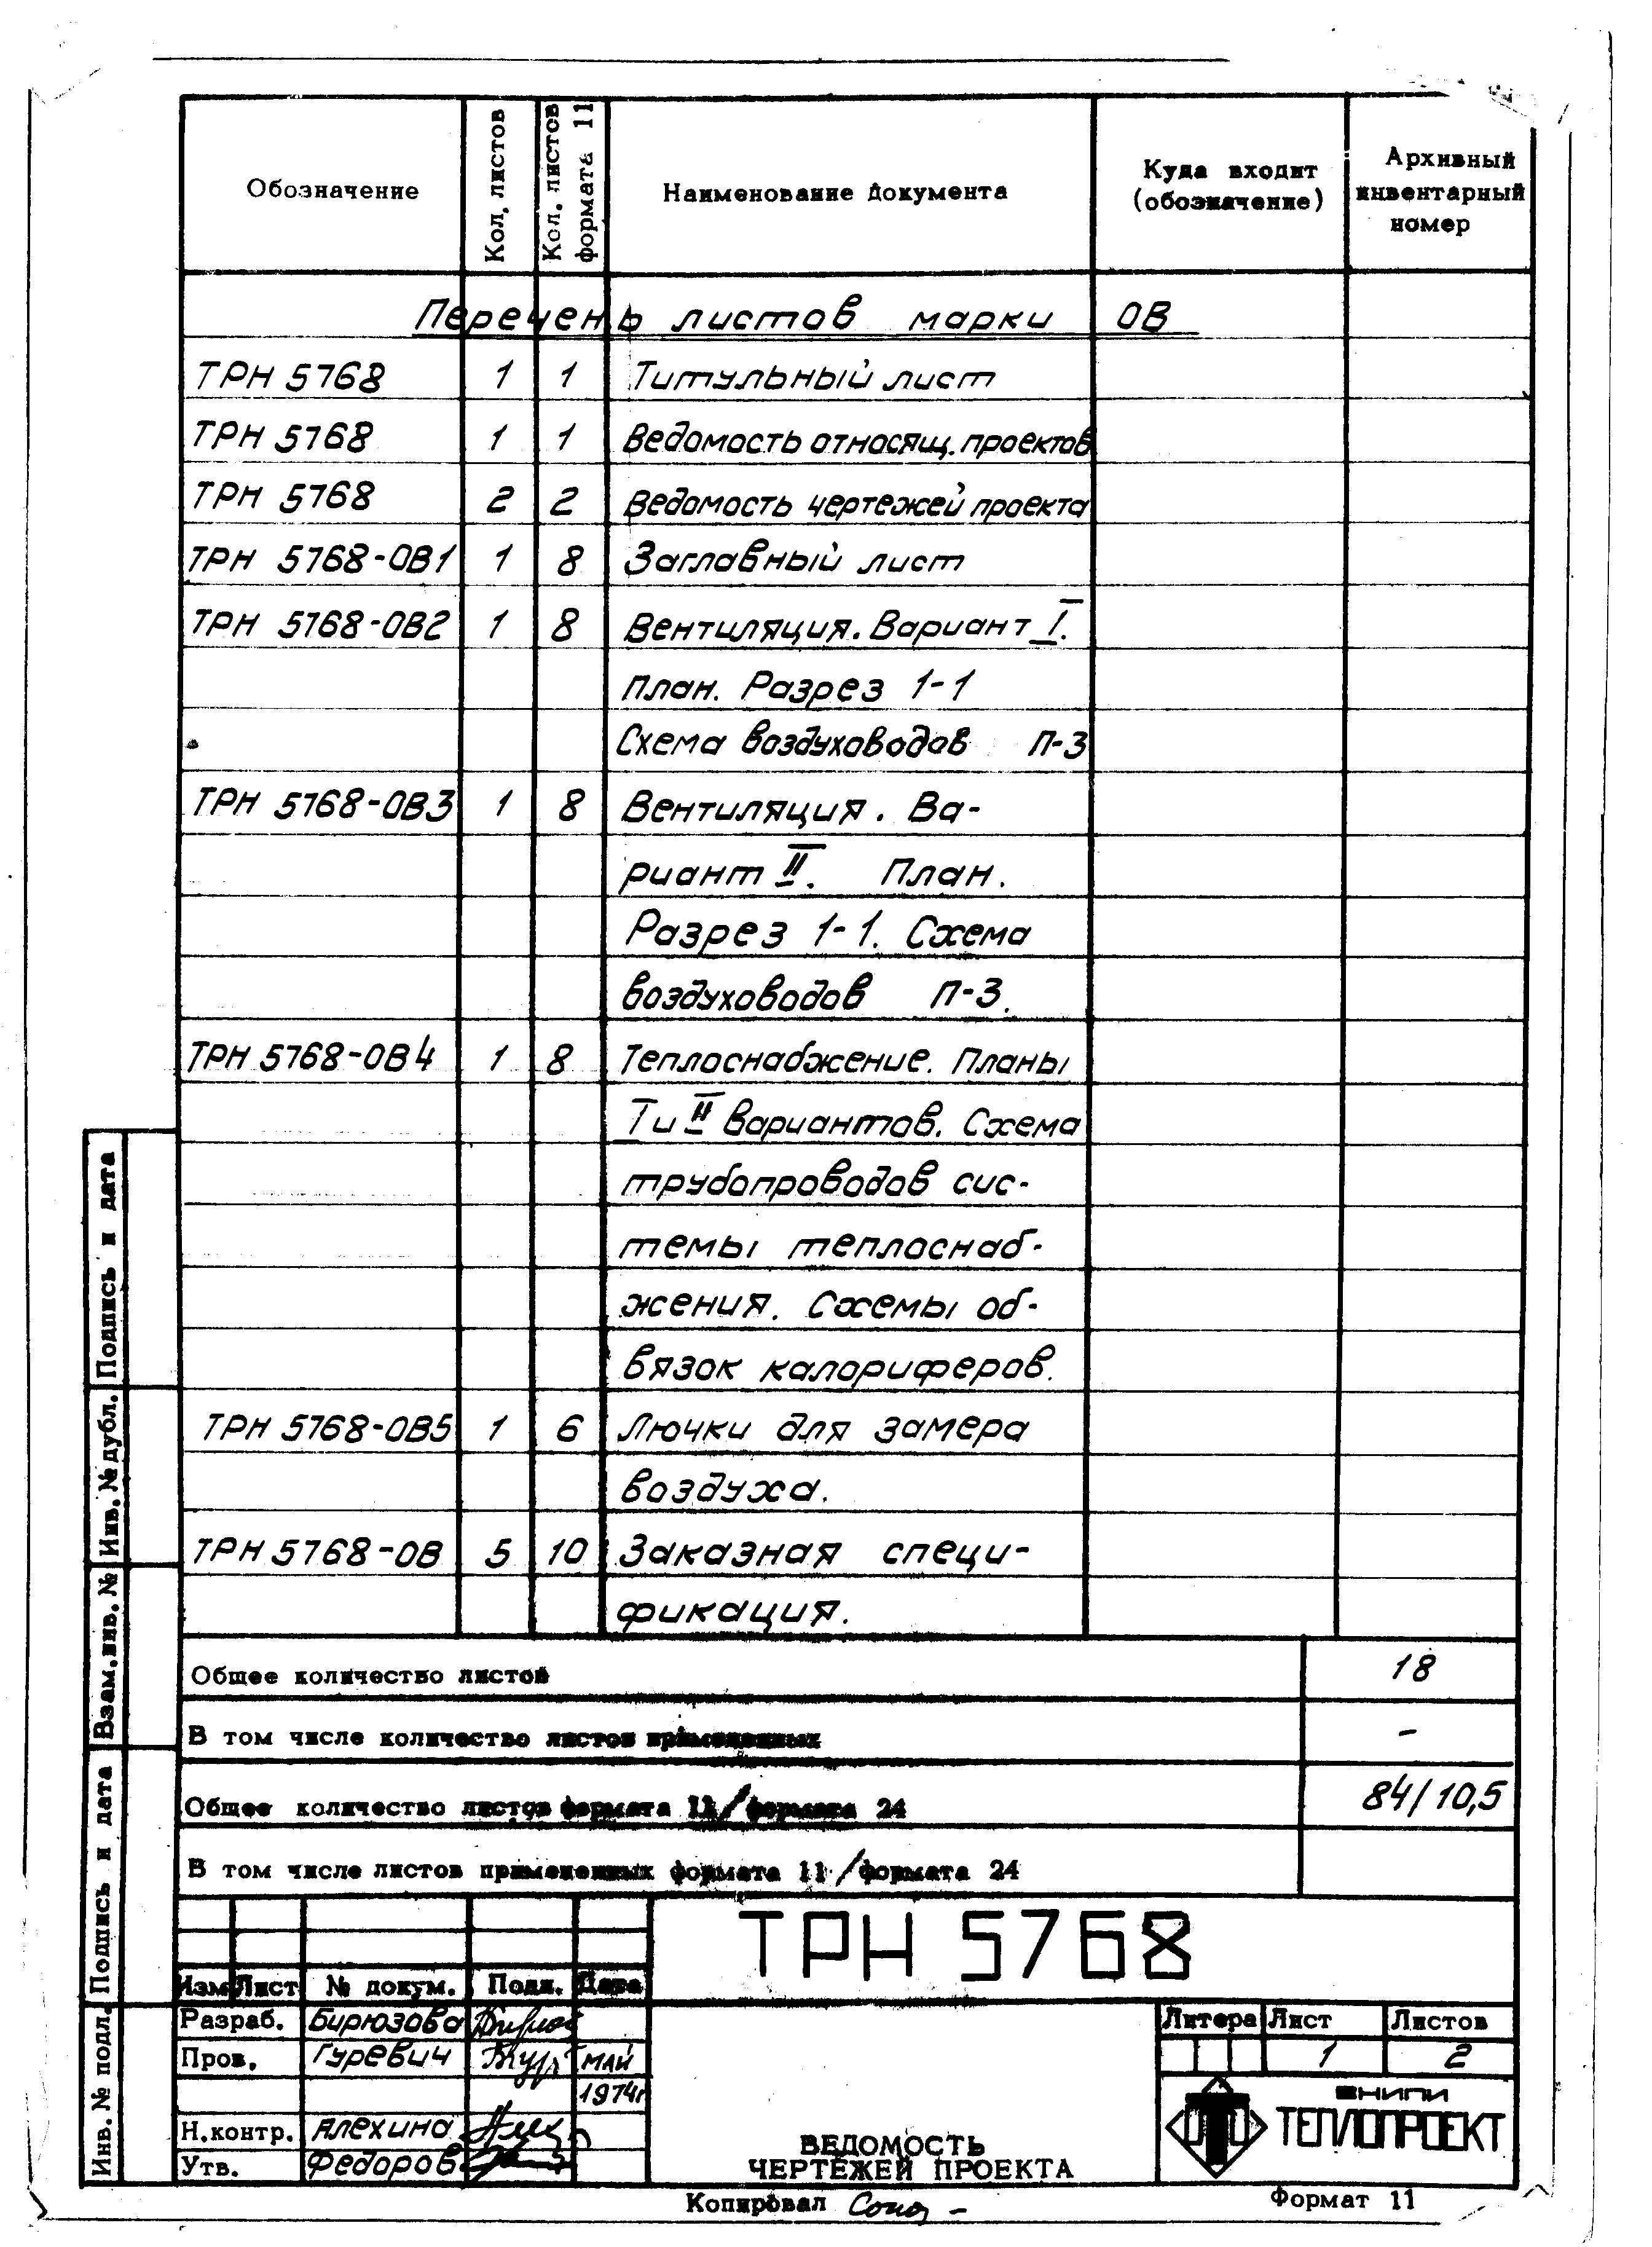 Обозначение Кол. листов Кол. листов формата 11 Наименование документа Куда входит (обозначение) Архивный инвентарный номер
Перечень листов марки ОВ
ТРН 5768 1 1 Титульный лист
ТРН 5768 1 1 Ведомость относящ. проектов
ТРН 5768 2 2 Ведомость чертежей проекта
ТРН 5768-ОВ1 1 8 Заглавный лист
ТРН 5768-ОВ2 1 8 Вентиляция. Вариант I.
план. Разрез 1-1
Схема воздуховодов П-3
ТРН 5768-ОВ3 1 8 Вентиляция. Ва-
риант II. План.
Разрез 1-1. Схема
воздуховодов П-3.
ТРН 5768-ОВ4 1 8 Теплоснабжение. Планы
I и II вариантов. Схема
трубопроводов сис-
темы теплоснаб-
жения. Схемы об-
вязок калориферов.
ТРН 5768-ОВ5 1 6 Лючки для замера
воздуха.
ТРН 5768-ОВ 5 10 Заказная специ-
фикация.
Общее количество листов 18
В том числе количество листов примененных -
Общее количество листов формата 11/формата 24 84/10,5
В том числе листов примененных формата 11/формата 24
ТРН 5768
Изм Лист № докум. Подп. Дата
Разраб. Бирюзова
Пров. Гуревич МАЙ
1974г
Н.контр. Алехина
Утв. Федоров
ВЕДОМОСТЬ
ЧЕРТЕЖЕЙ ПРОЕКТА
Литера Лист Листов
1 2
ВНИПИ
ТЕПЛОПРОЕКТ
Копировал
Формат 11
Инв. № подл. Подпись и дата Взам.инв. № Инв. № дубл. Подпись и дата